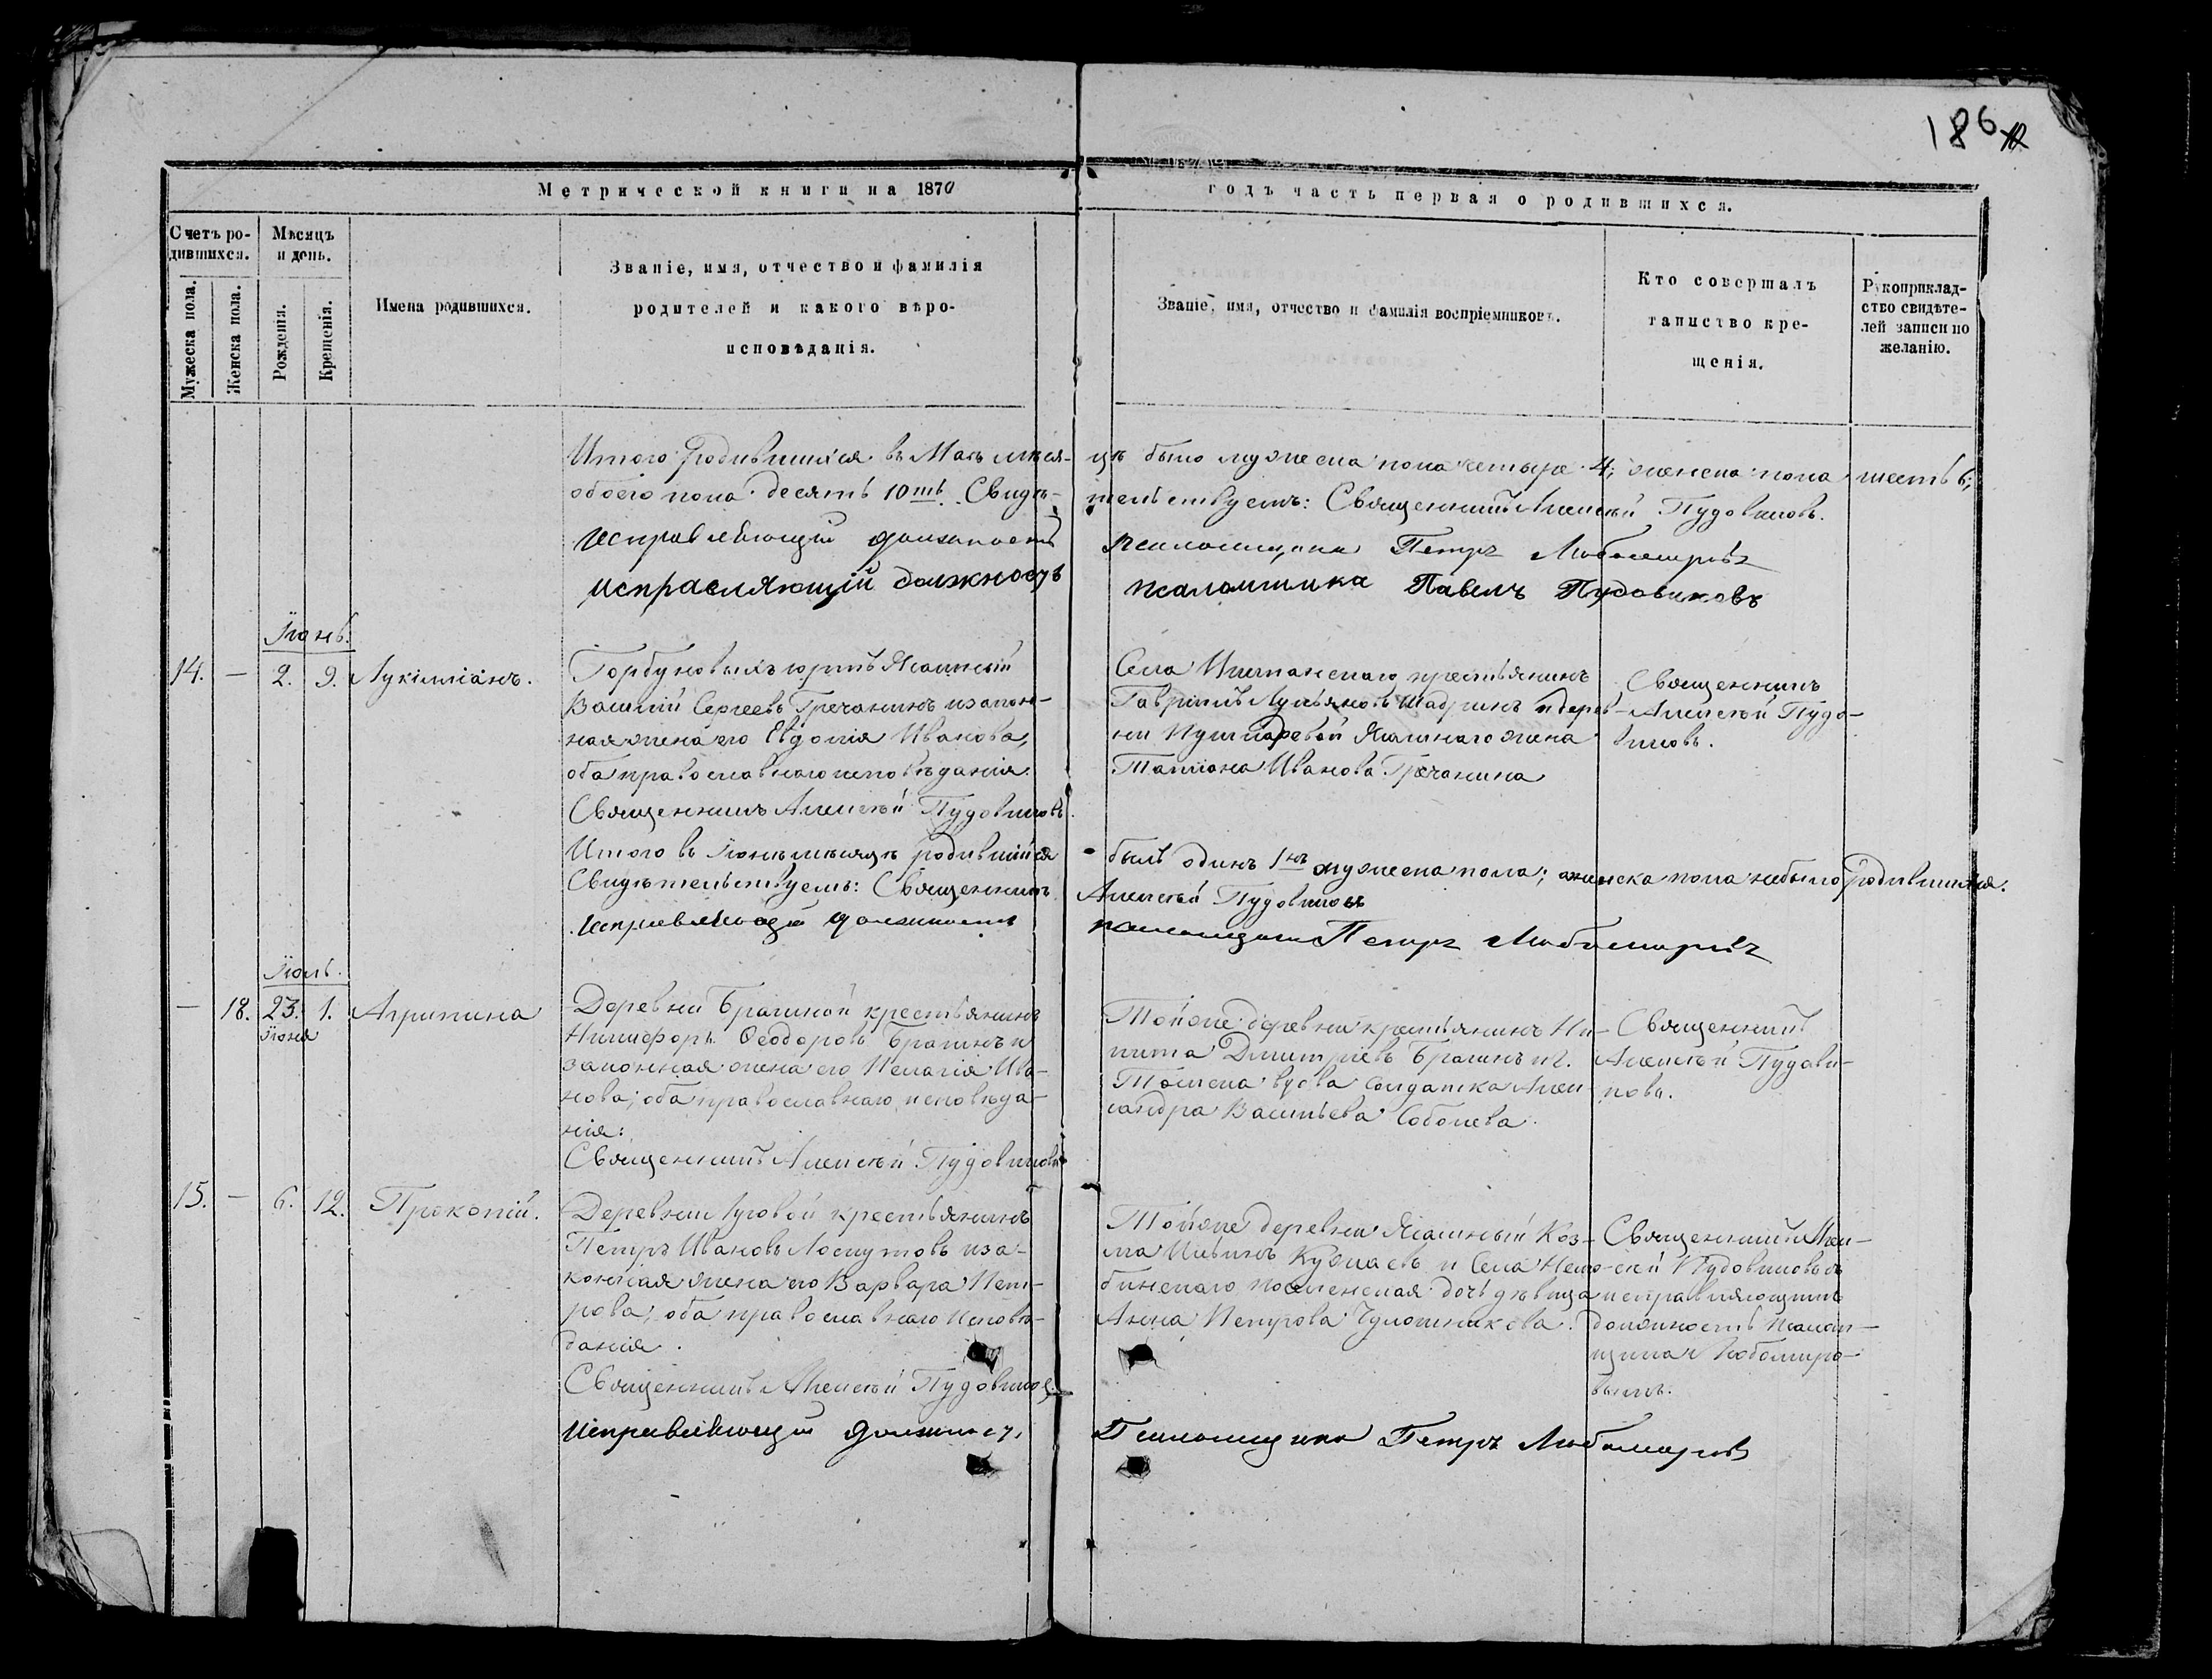 186
Метрической книги на 1870 годъ часть первая о родившихся.
Счетъ ро-
дившихся.
Мѣсяцъ
и день.
Мужеска пола.
Женска пола.
Рожденія.
Крещенія.
Имена родившихся.
Званіе, имя, отчество и фамилія
родителей и какого вѣро-
исповѣданія.
Званіе, имя, отчество и фамилія воспріемниковъ.
Кто совершалъ
таинство кре-
щенія.
Рукоприклад-
ство свидѣте-
лей записи по
желанію.
Итого родившихся въ Маѣ мѣся- цѣ было мужеска пола четыре 4; женска пола шесть 6;
обоего пола десять 10ть. Свидѣ- тельствуетъ: Священникъ Алексѣй Пудовиковъ.
Исправляющій должность псаломщика Петръ Любомировъ
исправляющій должность псаломщика Павелъ Пудовиковъ
Іюнь.
14. — 2. 9. Лукилліанъ.
Горбуновыхъ юртъ Ясашный
Василій Сергеевъ Гречанинъ и закон-
ная жена его Евдокія Иванова,
оба православнаго исповѣданія.
Священникъ Алексѣй Пудовиковъ.
Села крестьянинъ
Гавріилъ Лукьяновъ Шадринъ и дерев-
ни Ясашнаго жена
Татіана Иванова Гречанина
Священникъ
Алексѣй Пудо-
виковъ.
Итого въ Іюнѣ мѣсяцѣ родившійся былъ одинъ 1нъ мужеска пола; женска пола небыло родившихся.
Свидѣтельствуетъ: Священникъ Алексѣй Пудовиковъ
Исправляющій должность псаломщика Петръ Любомировъ
Іюль.
— 18. 23. 1. Агрипина
Іюня
Деревни Брагиной крестьянинъ
Никифоръ Ѳеодоровъ Брагинъ и
законная жена его Пелагія Ива-
нова; оба православнаго исповѣда-
нія:
Священникъ Алексѣй Пудовиковъ
Тойже деревни крестьянинъ Ни-
кита Дмитріевъ Брагинъ и г.
Томска вдова солдатка Алек-
сандра Васильева Соболева.
Священникъ
Алексѣй Пудови-
ковъ.
15. — 6. 12. Прокопій.
Деревни Луговой крестьянинъ
Петръ Ивановъ Лоскутовъ и за-
конная жена его Варвара Пет-
рова; оба православнаго исповѣ-
данія.
Священникъ Алексѣй Пудовиковъ
Тойже деревни Ясашный Коз-
ма и Села
дочь дѣвица
Анна Петрова
Священникъ Алек-
сѣй Пудовиковъ съ
исправляющимъ
должность псалом-
щика Любомиро-
вымъ.
Исправляющій должность Псаломщика Петръ Любомировъ